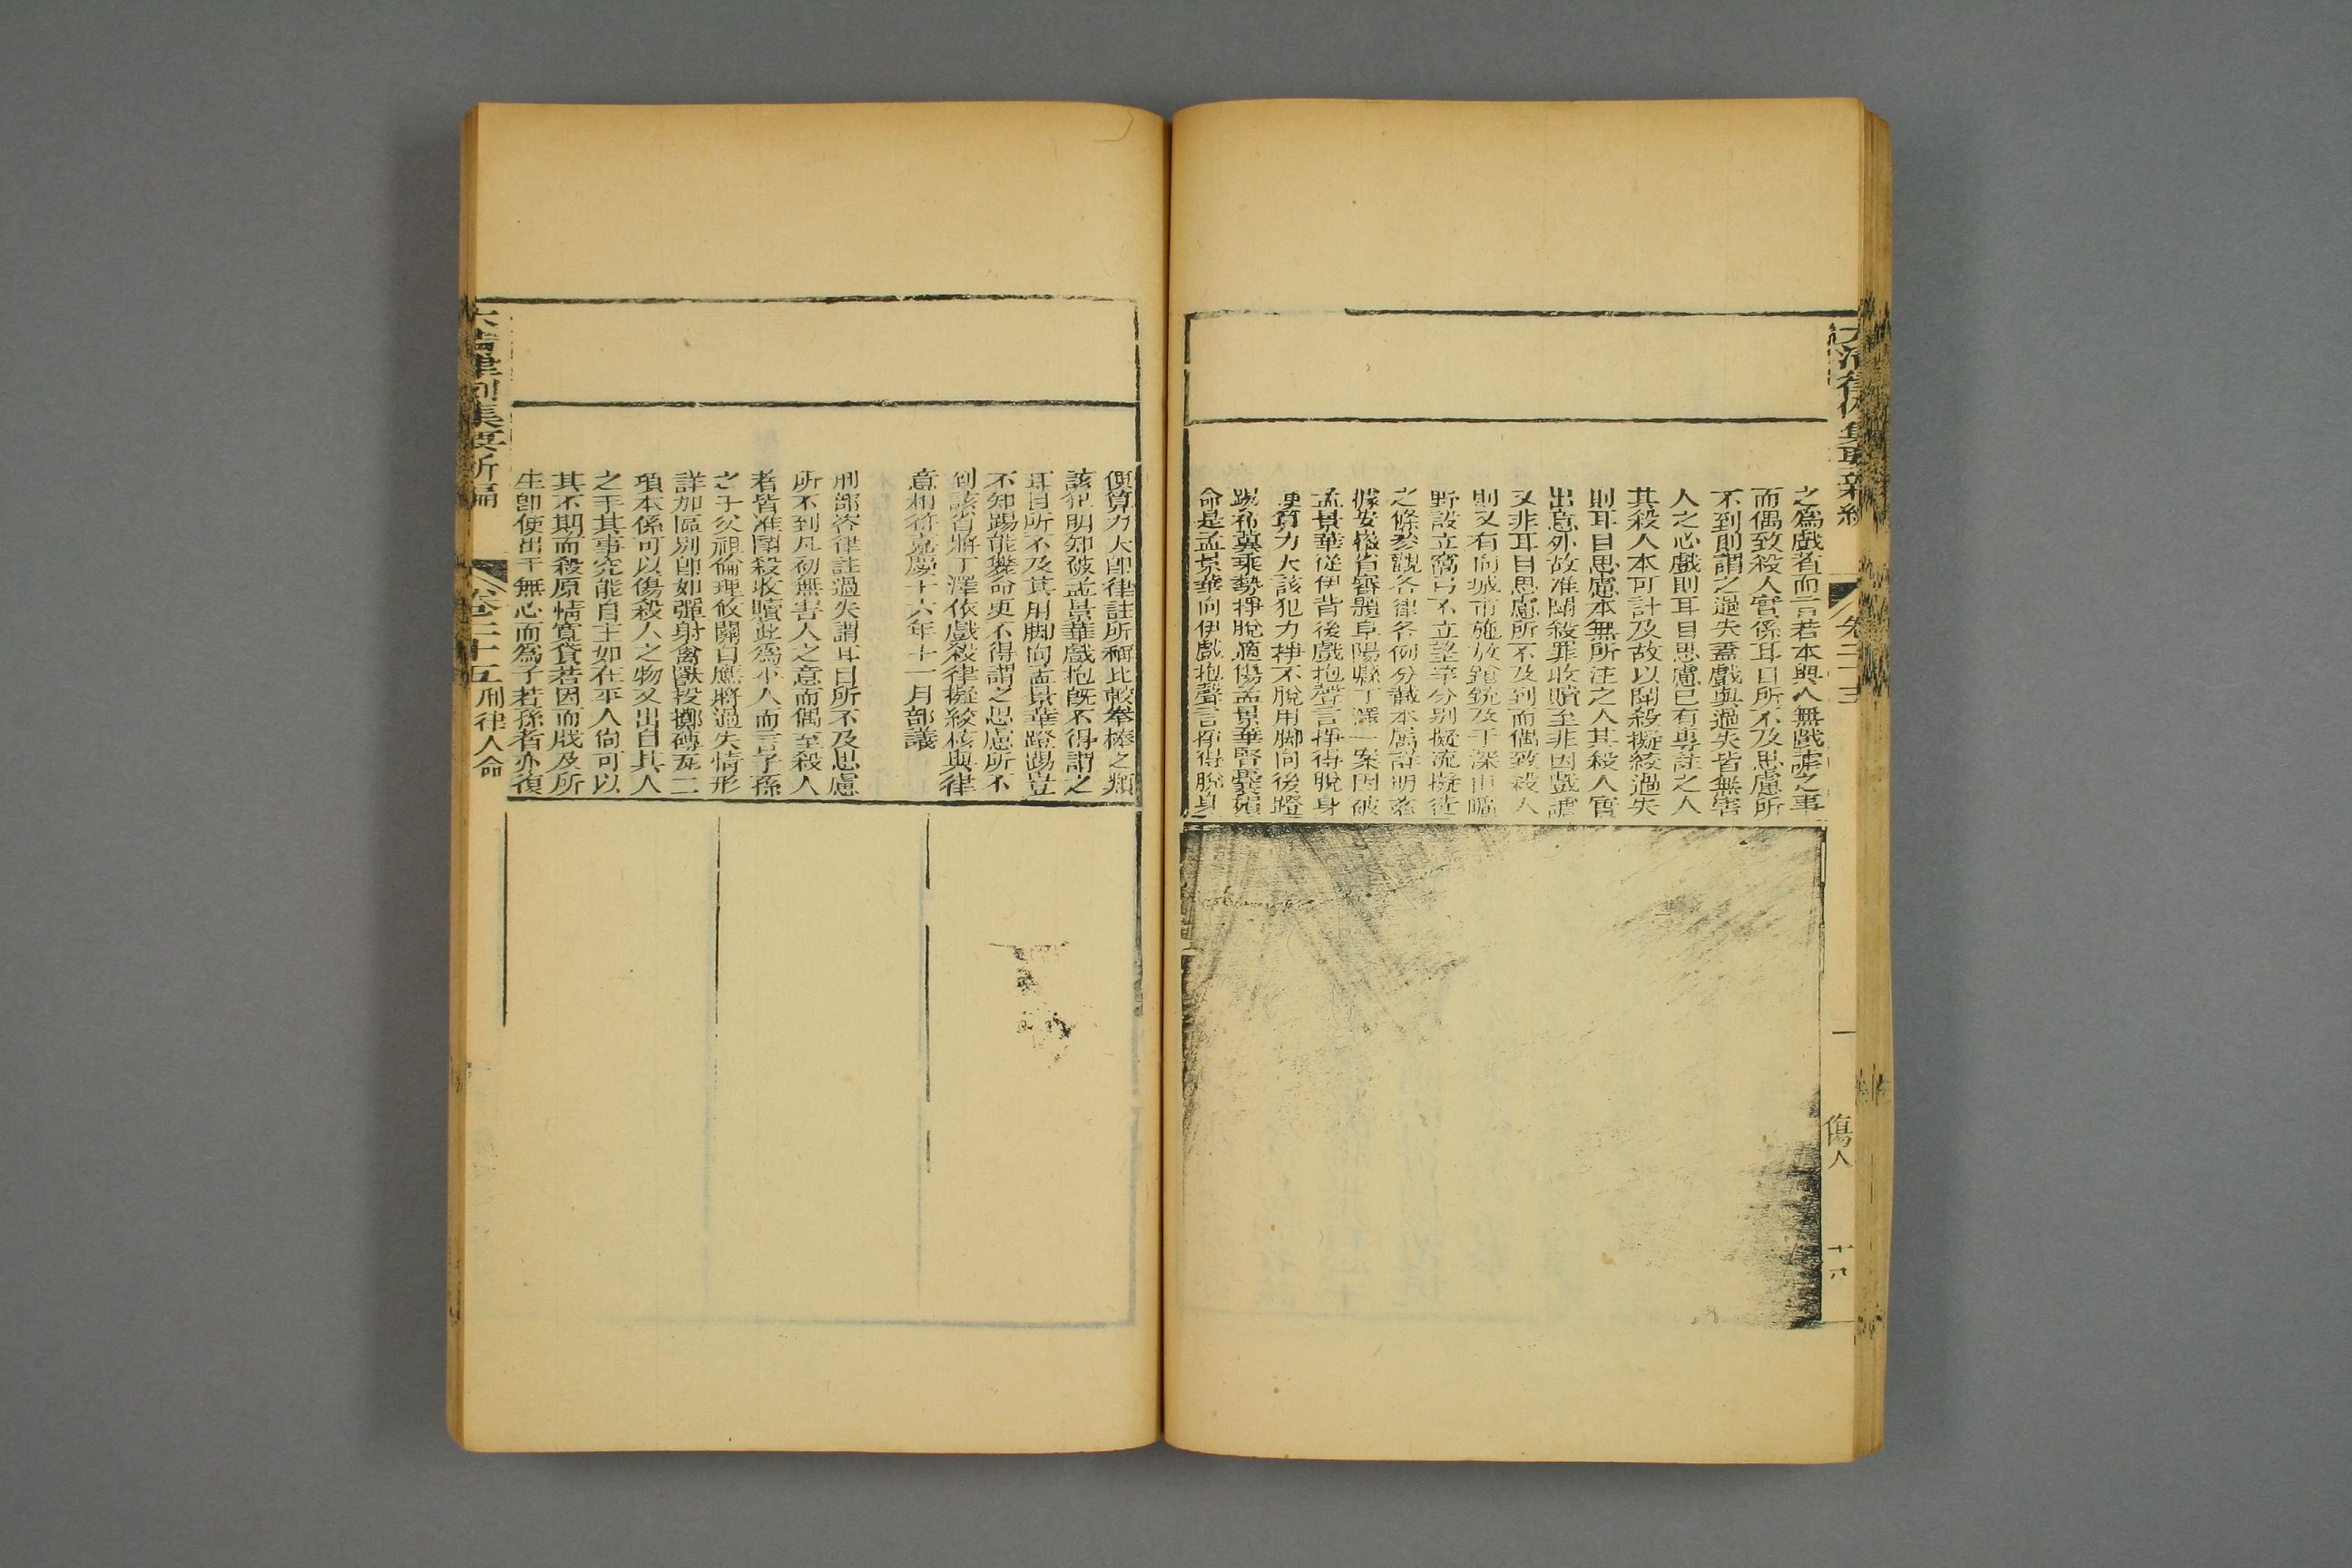 之為戲者而言若本與人無戲謔之事
而偶致殺人實係耳目所不及思慮所
不到則謂之過失蓋戲與過失皆無害
人之心戲則耳目思慮已有專註之人
其殺人本可計及故以鬭殺擬絞過失
則耳目思慮本無所注之人其殺人實
出意外故准鬭殺罪收贖至非因戲謔
又非耳目思慮所不及到而偶致殺人
則又有向城市施放鎗銃及于深山曠
野設立窩弓不立望竿分別擬流擬徒
之條參觀各律各例分識本屬詳明茲
據安徽省審題阜陽縣丁澤一案因被
孟景華從伊背後戲抱聲言掙得脫身
便算力大該犯力掙不脫用脚向後蹬
踢希冀乘勢掙脫適傷孟景華腎囊殞
命是孟景華向伊戲抱聲言掙得脫身
傷人
十六
便算力大卽律註所稱比較拳棒之類
該犯明知被孟景華戲抱旣不得謂之
耳目所不及其用脚向孟景華蹬踢豈
不知踢能斃命更不得謂之思慮所不
到該省將丁澤依戲殺律擬絞核與律
意相符嘉慶十六年十一月部議
刑部咨律註過失謂耳目所不及思慮
所不到凡初無害人之意而偶至殺人
者皆准鬭殺收贖此為凡人而言子孫
之于父祖倫理攸關自應將過失情形
詳加區別卽如彈射禽獸投擲磚瓦二
項本係可以傷殺人之物又出自其人
之手其事究能自主如在平人尙可以
其不期而殺原情寬貸若因而戕及所
生卽使出于無心而為子若孫者亦復
大清律例集要新編
卷二十五
刑律人命